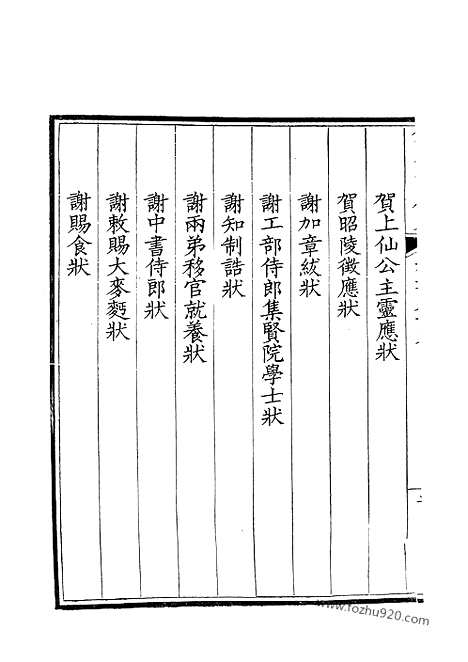 賀上仙公主靈應狀
賀昭陵徵應狀
謝加章紱狀
謝工部侍郎集賢院學士狀
謝知制誥狀
謝兩弟移官就養狀
謝中書侍郎狀
謝敕賜大麥麪狀
謝賜食狀
www.fozhu920.com